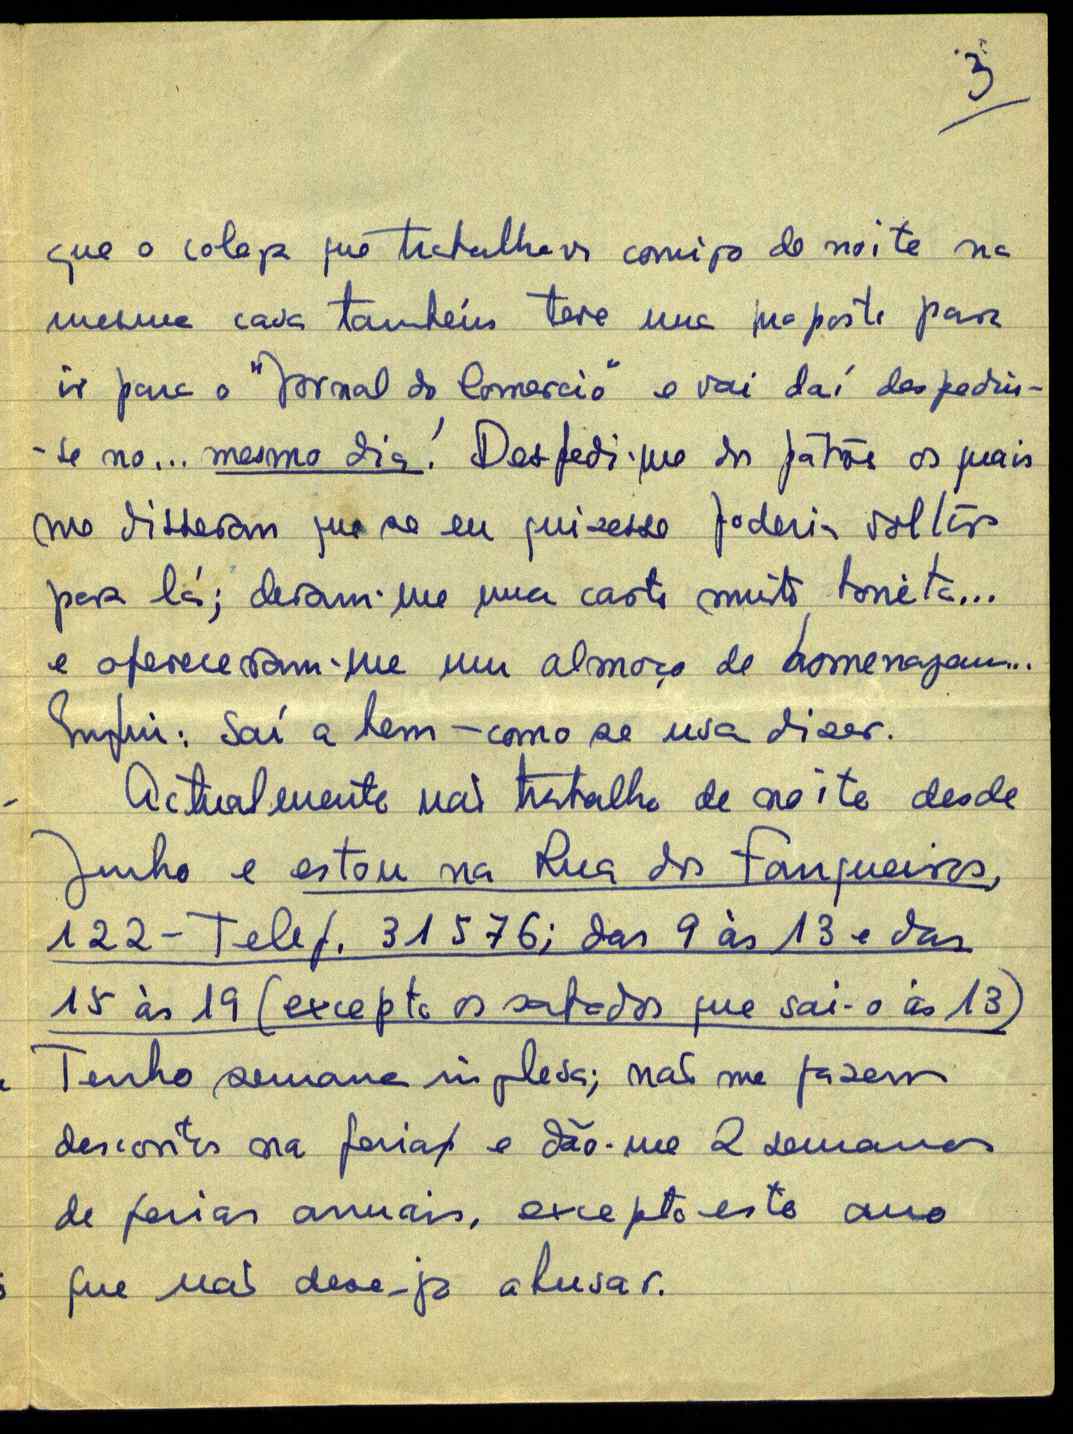 3
que o colega que trabalhava comigo de noite na
mesma casa também teve uma proposta para
ir para o "Jornal do Comercio" e vai daí despediu-
-se no... mesmo dia! Despedi-me dos patrões os quais
me disseram que se eu quizesse poderia voltar
para lá; deram-me uma carta muito bonita...
e ofereceram-me um almoço de homenagem...
Enfim: saí a bem - como se usa dizer.
Actualmente não trabalho de noite desde
Junho e estou na Rua dos Fanqueiros,
122 - Telef. 31576; das 9 às 13 e das
15 às 19 (excepto os sabados que sai-o às 13)
Tenho semana inglesa; não me fazem
descontos na feria e dão-me 2 semanas
de ferias anuais, excepto este ano
que não dese-jo abusar.